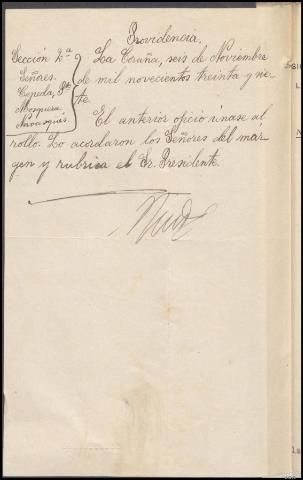 Providencia.
Sección 2ª
Señores.
Cepeda, Pte
Mosquera
Navasqués
La Coruña, seis de Noviembre
de mil novecientos treinta y sie-
te.
El anterior oficio únase al
rollo. Lo acordaron los Señores del mar-
gen y rubrica el Sr. Presidente.